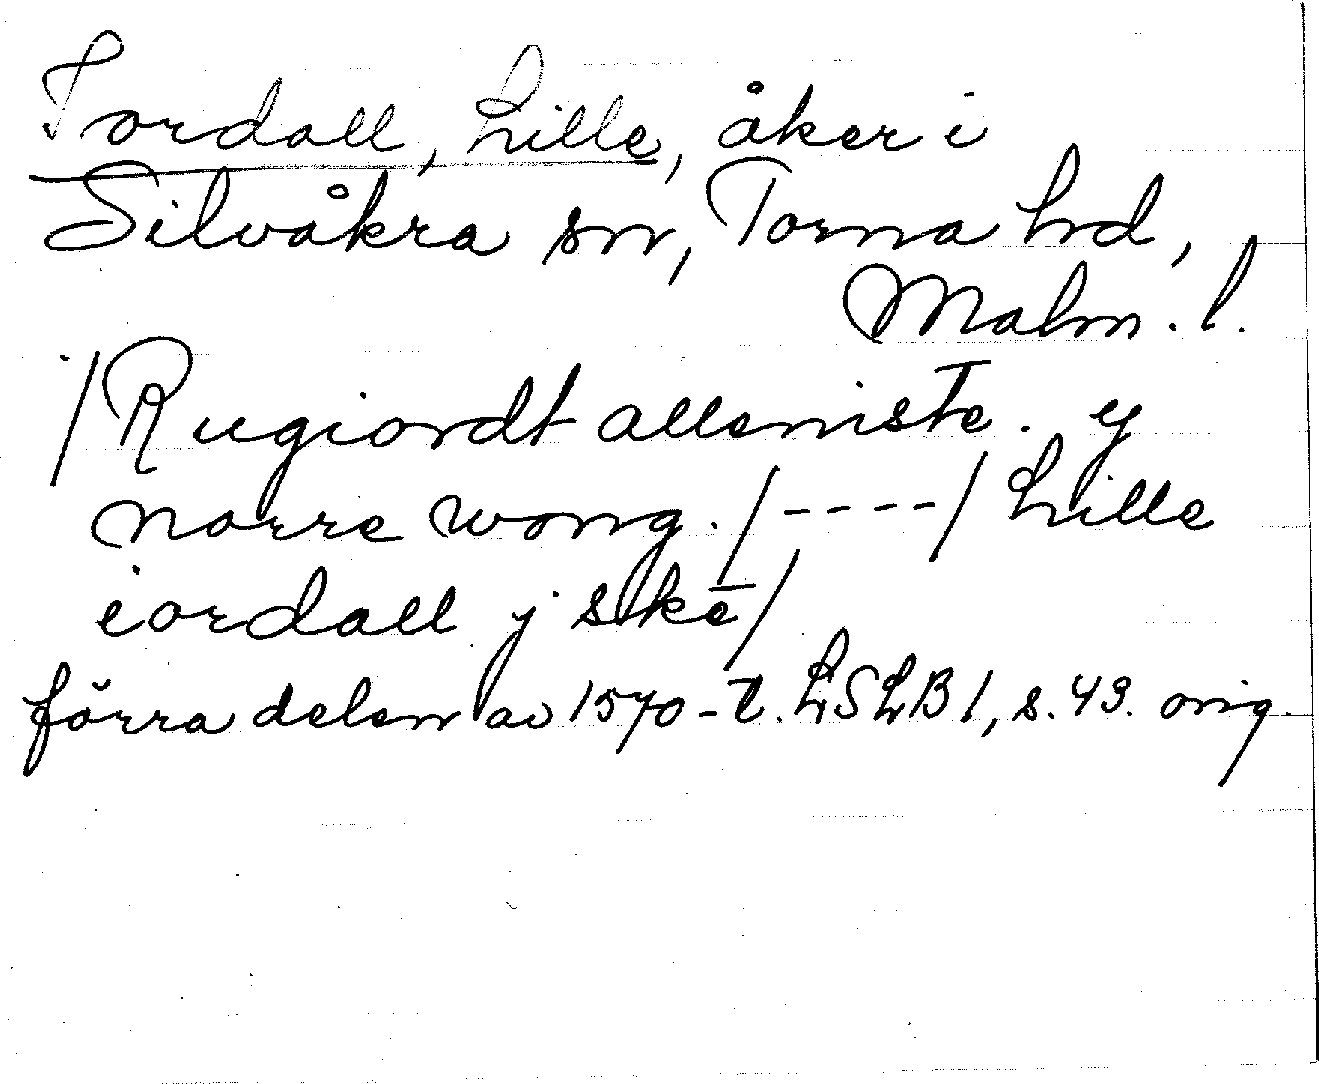 Jordall, Lille, åker i
Silvåkra sn, Torna hd,
Malm. l.
/Rugiordt allemiste. y
norre wong. /----/ Lille
iordall j skē/
förra delen av 1570-t. LSLB 1, s. 43. orig.